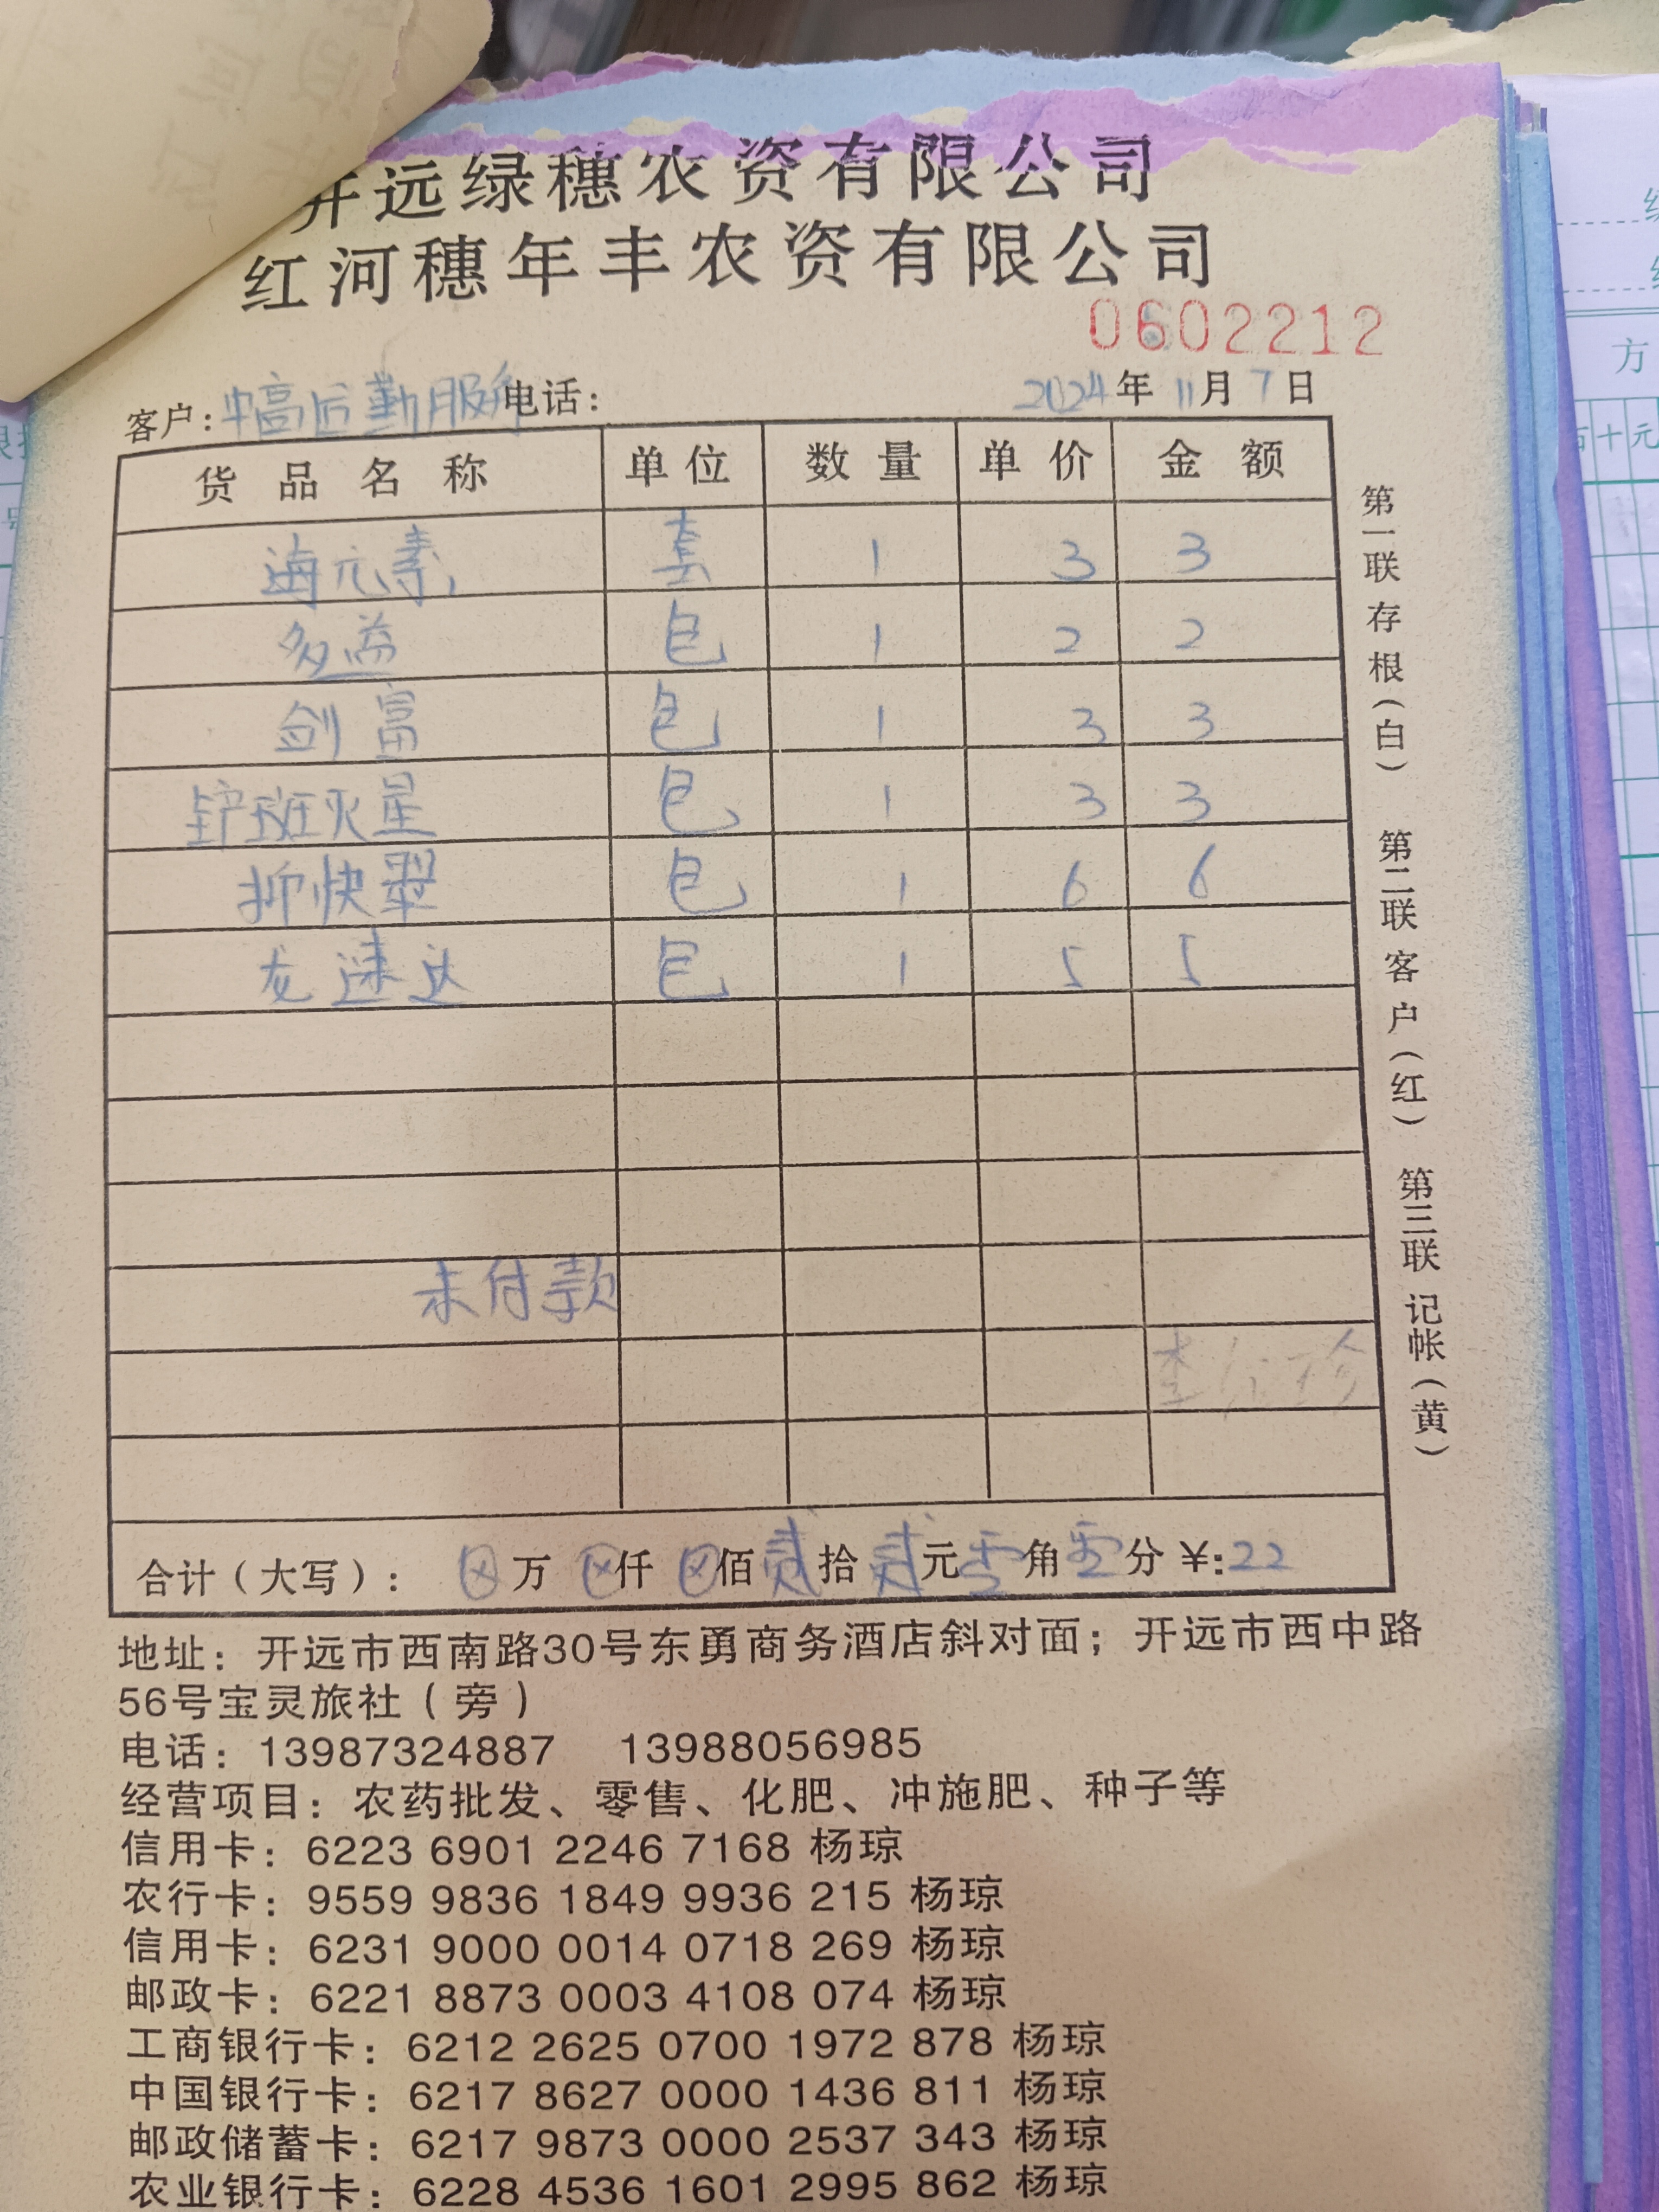 开远绿穗农资有限公司
红河穗年丰农资有限公司
0602212
客户: 高后勤服务 电话: 2024年11月7日
货品名称 单位 数量 单价 金额
海元素 套 1 3 3
多益 包 1 2 2
剑富 包 1 3 3
铲斑灭星 包 1 3 3
抑快翠 包 1 6 6
龙速达 包 1 5 5
未付款
李 珍
合计(大写): ⊗万 ⊗仟 ⊗佰 贰拾 贰元 零角 零分 ¥:22
第一联存根(白) 第二联客户(红) 第三联记帐(黄)
地址: 开远市西南路30号东勇商务酒店斜对面; 开远市西中路
56号宝灵旅社(旁)
电话: 13987324887 13988056985
经营项目: 农药批发、零售、化肥、冲施肥、种子等
信用卡: 6223 6901 2246 7168 杨琼
农行卡: 9559 9836 1849 9936 215 杨琼
信用卡: 6231 9000 0014 0718 269 杨琼
邮政卡: 6221 8873 0003 4108 074 杨琼
工商银行卡: 6212 2625 0700 1972 878 杨琼
中国银行卡: 6217 8627 0000 1436 811 杨琼
邮政储蓄卡: 6217 9873 0000 2537 343 杨琼
农业银行卡: 6228 4536 1601 2995 862 杨琼
方
十元